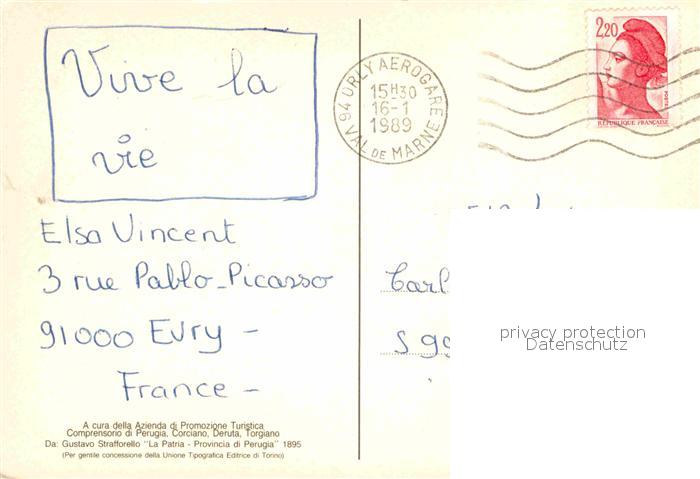 Vive la
vie
Elsa Vincent
3 rue Pablo-Picasso
91000 Evry -
France -
A cura della Azienda di Promozione Turistica
Comprensorio di Perugia, Corciano, Deruta, Torgiano
Da: Gustavo Strafforello "La Patria - Provincia di Perugia" 1895
(Per gentile concessione della Unione Tipografica Editrice di Torino)
94 ORLY AEROGARE
15H30
16-1
1989
VAL DE MARNE
2,20
POSTES
REPUBLIQUE FRANÇAISE
Carl
privacy protection
Datenschutz